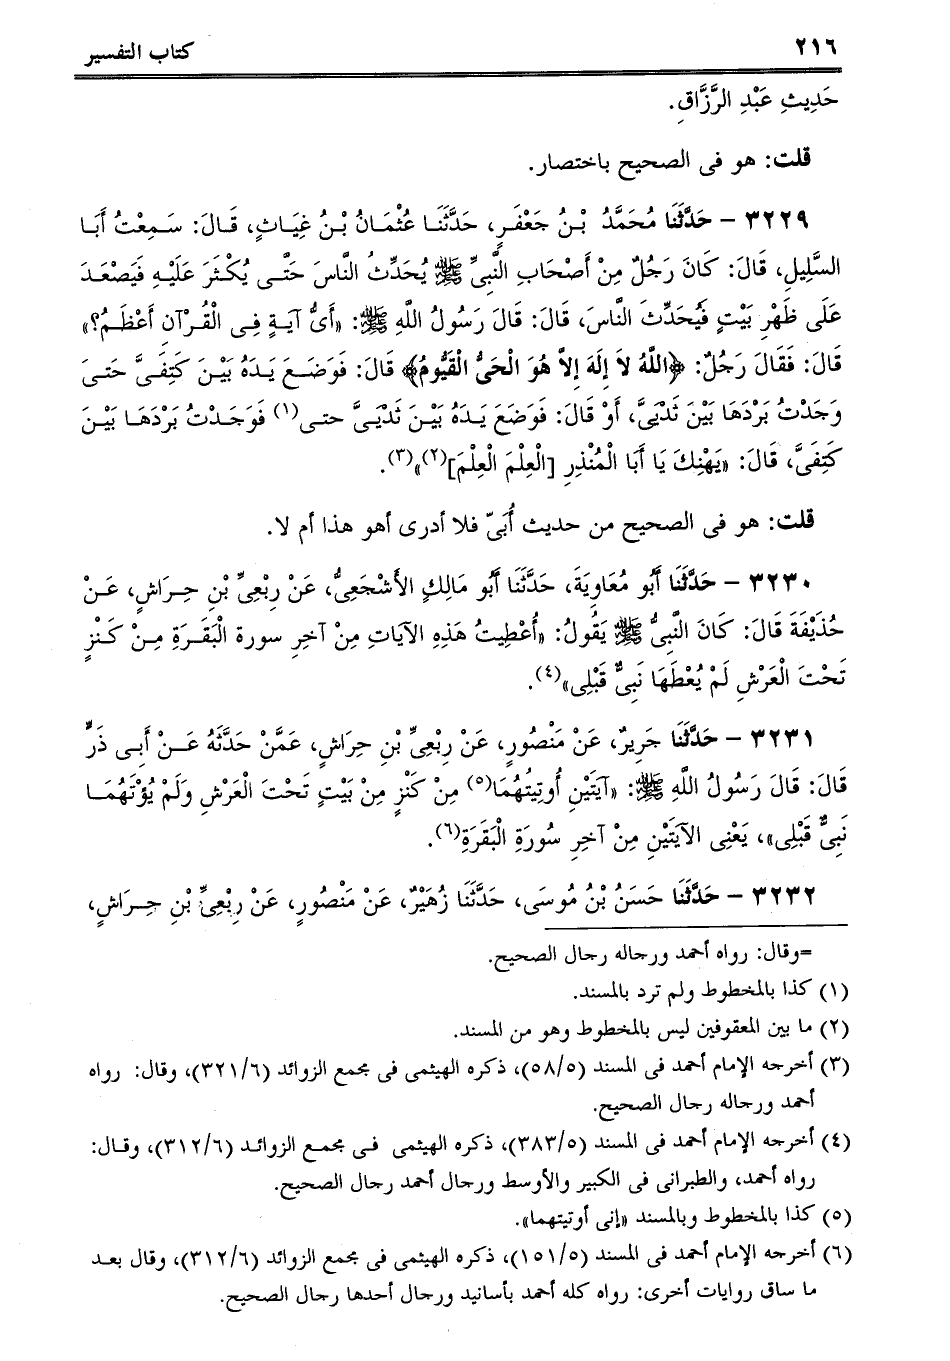 ٢١٦ كتاب التفسير
حَدِيثِ عَبْدِ الرَّزَّاقِ.
قلت: هو فى الصحيح باختصار.
٣٢٢٩ – حَدَّثَنَا مُحَمَّدُ بْنُ جَعْفَرٍ، حَدَّثَنَا عُثْمَانُ بْنُ غِيَاثٍ، قَالَ: سَمِعْتُ أَبَا
السَّلِيلِ، قَالَ: كَانَ رَجُلٌ مِنْ أَصْحَابِ النَّبِىِّ ﷺ يُحَدِّثُ النَّاسَ حَتَّى يُكْثَرَ عَلَيْهِ فَيَصْعَدَ
عَلَى ظَهْرِ بَيْتٍ فَيُحَدِّثَ النَّاسَ، قَالَ: قَالَ رَسُولُ اللَّهِ ﷺ: «أَىُّ آيَةٍ فِى الْقُرْآنِ أَعْظَمُ؟»
قَالَ: فَقَالَ رَجُلٌ: ﴿اللَّهُ لاَ إِلَهَ إِلاَّ هُوَ الْحَىُّ الْقَيُّومُ﴾ قَالَ: فَوَضَعَ يَدَهُ بَيْنَ كَتِفَىَّ حتى
وَجَدْتُ بَرْدَهَا بَيْنَ ثَدْيَىَّ، أَوْ قَالَ: فَوَضَعَ يَدَهُ بَيْنَ ثَدْيَىَّ حتى(١) فَوَجَدْتُ بَرْدَهَا بَيْنَ
كَتِفَىَّ، قَالَ: «يَهْنِكَ يَا أَبَا الْمُنْذِرِ [الْعِلْمَ الْعِلْمَ](٢)»(٣).
قلت: هو فى الصحيح من حديث أُبَىّ فلا أدرى أهو هذا أم لا.
٣٢٣٠ – حَدَّثَنَا أَبُو مُعَاوِيَةَ، حَدَّثَنَا أَبُو مَالِكٍ الأَشْجَعِىُّ، عَنْ رِبْعِىِّ بْنِ حِرَاشٍ، عَنْ
حُذَيْفَةَ قَالَ: كَانَ النَّبِىُّ ﷺ يَقُولُ: «أُعْطِيتُ هَذِهِ الآيَاتِ مِنْ آخِرِ سورة الْبَقَرَةِ مِنْ كَنْزٍ
تَحْتَ الْعَرْشِ لَمْ يُعْطَهَا نَبِىٌّ قَبْلِى»(٤).
٣٢٣١ – حَدَّثَنَا جَرِيرٌ، عَنْ مَنْصُورٍ، عَنْ رِبْعِىِّ بْنِ حِرَاشٍ، عَمَّنْ حَدَّثَهُ عَنْ أَبِى ذَرٍّ
قَالَ: قَالَ رَسُولُ اللَّهِ ﷺ: «آيَتَيْنِ أُوتِيتُهُمَا(٥) مِنْ كَنْزٍ مِنْ بَيْتٍ تَحْتَ الْعَرْشِ وَلَمْ يُؤْتَهُمَا
نَبِىٌّ قَبْلِى»، يَعْنِى الآيَتَيْنِ مِنْ آخِرِ سُورَةِ الْبَقَرَةِ(٦).
٣٢٣٢ – حَدَّثَنَا حَسَنُ بْنُ مُوسَى، حَدَّثَنَا زُهَيْرٌ، عَنْ مَنْصُورٍ، عَنْ رِبْعِىِّ بْنِ حِرَاشٍ،
=وقال: رواه أحمد ورجاله رجال الصحيح.
(١) كذا بالمخطوط ولم ترد بالمسند.
(٢) ما بين المعقوفين ليس بالمخطوط وهو من المسند.
(٣) أخرجه الإمام أحمد فى المسند (٥٨/٥)، ذكره الهيثمى فى مجمع الزوائد (٣٢١/٦)، وقال: رواه
أحمد ورجاله رجال الصحيح.
(٤) أخرجه الإمام أحمد فى المسند (٣٨٣/٥)، ذكره الهيثمى فى مجمع الزوائد (٣١٢/٦)، وقال:
رواه أحمد، والطبرانى فى الكبير والأوسط ورجال أحمد رجال الصحيح.
(٥) كذا بالمخطوط وبالمسند «إنى أوتيتهما».
(٦) أخرجه الإمام أحمد فى المسند (١٥١/٥)، ذكره الهيثمى فى مجمع الزوائد (٣١٢/٦)، وقال بعد
ما ساق روايات أخرى: رواه كله أحمد بأسانيد ورجال أحدها رجال الصحيح.